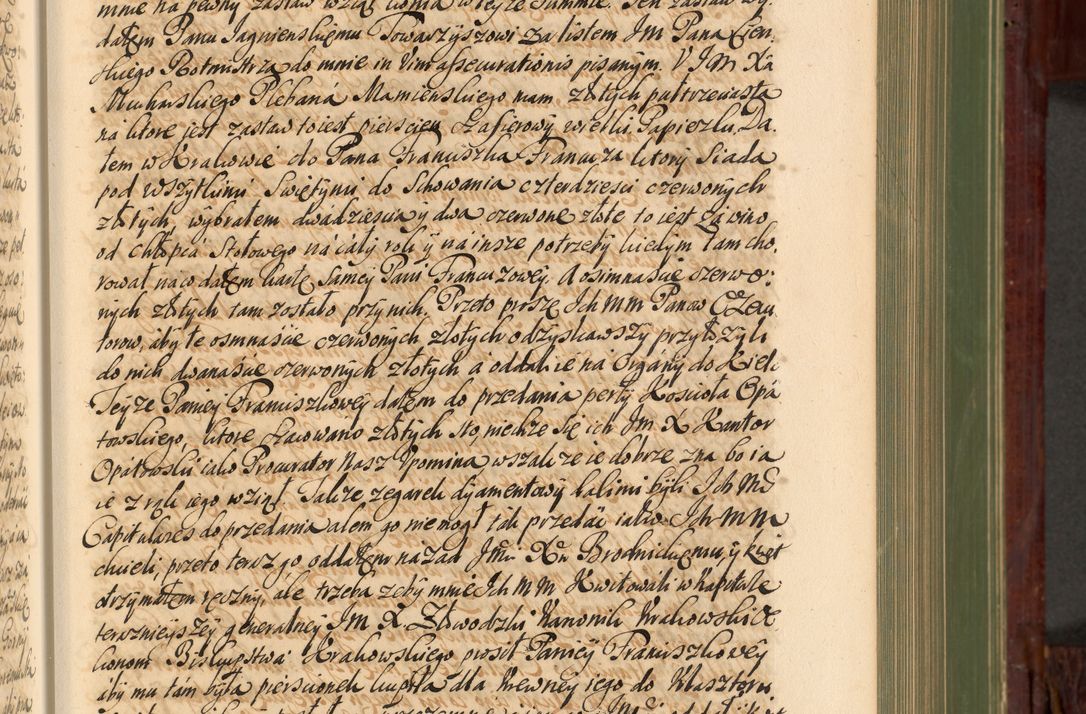 mnie na pewny zastaw wziął w teyze summie. Ten zastaw wy-
dałem Panu Jagnienskiemu Towarzyszowi za listem Jm Pana
skiego Rotmistrza do mnie in vim assecurationis pisanym. V JM Xa
Mucharskiego Plebana Mamienskiego mam złotych pułtrzeciasta
na ktore jest zastaw to iest pierscien szafierowy wielki Papiezki. Da-
łem w Krakowie do Pana Franciszka Francuza ktory Siada
pod Wszytkimi Swiętymi do Schowania czterdziesci czerwonych
złotych, wybrałem dwadziescia y dwa czerwone złote to iest za wino
od chłopca Stołowego na cały rok y na insze potrzeby kiedym tam cho-
rował na co dałem kartę samey Pani Francuzowey. A osimnascie czerwo-
nych złotych tam zostało przy nich. Przeto proszę Ich MM Panow Exeku
torow, aby te osmnascie czerwonych złotych odzyskawszy przyłozyli
do nich dwanascie czerwonych złotych a oddali ie na Organy do Kielc
Teyze Paniey Franciszkowey dałem do przedania perły Koscioła Opa
towskiego, ktore szacowano złotych sto, niechze się ich Jm X Kantor
Opatowski iako Procurator Nasz upomina, wszakze ie dobrze zna bo ia
ie z ręki iego wziął. Takze zegarek dyamentowy ktory mi byli Ich MM
Capitulares do przedania alem go nie mogł tak przedac iako Ich MM
chcieli, przeto teraz go oddałem nazad Jmci Xu Brodnickiemu, y kwit
otrzymałem ręczny, ale trzeba zeby mnie Ich MM Kwitowali w Kapitule
teraznieyszey generalney Jm X Złowodzki Kanonik Krakowski
Biskupstwa Krakowskiego prosił Paniey Franciszkowey
aby mu tam była piersionek kupiła dla Krewney iego do Klasztoru